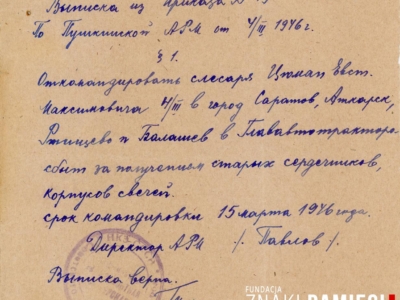 Выписка из приказа №
По Пушкинской АРМ от 4/III 1946г.
§ 1.
Откомандировать слесаря Цюман Евст.
Максимовича 4/III в город Саратов, Аткарск,
Ртищево и Балашев в Глававтотракторо-
сбыт за получением старых сердечников,
корпусов свечей.
срок командировки 15 марта 1946 года.
Директор АРМ /. Павлов /.
Выписка верна.
FUNDACJA
ZNAKI PAMIĘCI